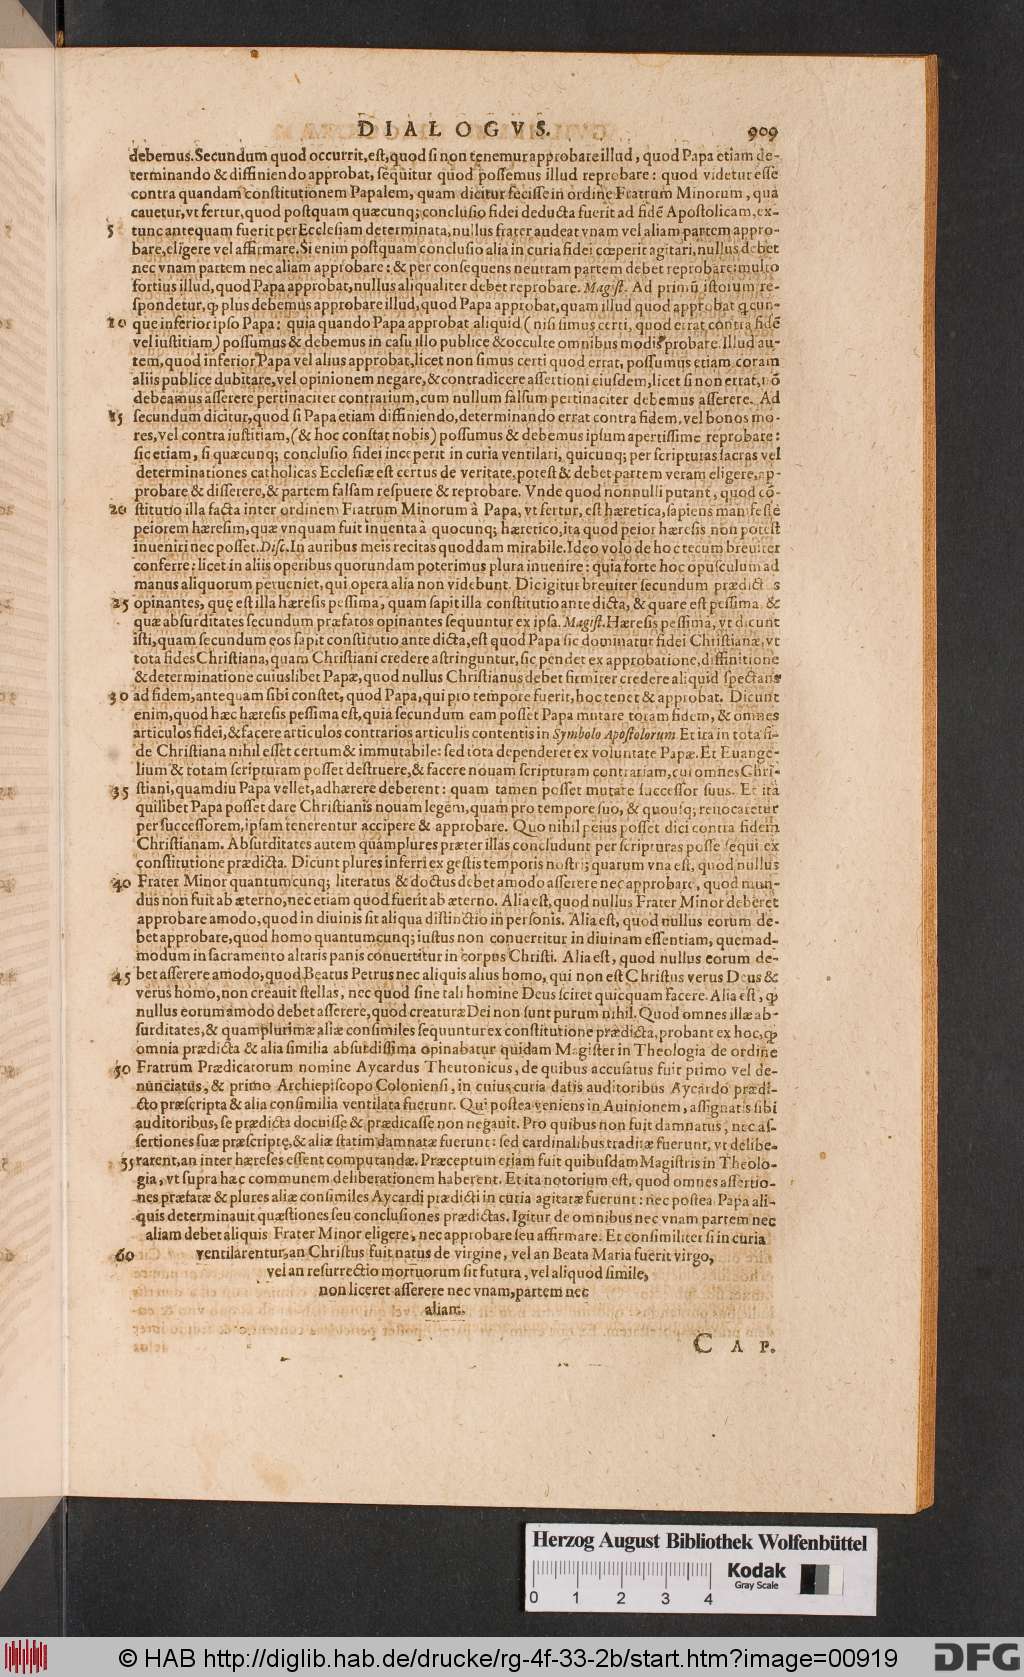 DIALOGVS. 909
debemus. Secundum quod occurrit, est, quod si non tenemur approbare illud, quod Papa etiam de-
terminando & diffiniendo approbat, sequitur quod possemus illud reprobare: quod videtur esse
contra quandam constitutionem Papalem, quam dicitur fecisse in ordine Fratrum Minorum, qua
cauetur, vt fertur, quod postquam quæcunq; conclusio fidei deducta fuerit ad fidē Apostolicam, ex-
5 tunc antequam fuerit per Ecclesiam determinata, nullus frater audeat vnam vel aliam partem appro-
bare, eligere vel affirmare. Si enim postquam conclusio alia in curia fidei cœperit agitari, nullus debet
nec vnam partem nec aliam approbare: & per consequens neutram partem debet reprobare: multo
fortius illud, quod Papa approbat, nullus aliqualiter debet reprobare. Magist. Ad primū istorum re-
spondetur, φ plus debemus approbare illud, quod Papa approbat, quam illud quod approbat qcun-
10 que inferior ipso Papa: quia quando Papa approbat aliquid (nisi simus certi, quod errat contra fidē
vel iustitiam) possumus & debemus in casu illo publice & occulte omnibus modis probare. Illud au-
tem, quod inferior Papa vel alius approbat, licet non simus certi quod errat, possumus etiam coram
aliis publice dubitare, vel opinionem negare, & contradicere assertioni eiusdem, licet si non errat, nō
debeamus asserere pertinaciter contrarium, cum nullum falsum pertinaciter debemus asserere. Ad
15 secundum dicitur, quod si Papa etiam diffiniendo, determinando errat contra fidem, vel bonos mo-
res, vel contra iustitiam, (& hoc constat nobis) possumus & debemus ipsum apertissime reprobare:
sic etiam, si quæcunq; conclusio fidei inceperit in curia ventilari, quicunq; per scripturas sacras vel
determinationes catholicas Ecclesiæ est certus de veritate, potest & debet partem veram eligere, ap-
probare & disserere, & partem falsam respuere & reprobare. Vnde quod nonnulli putant, quod cō-
20 stitutio illa facta inter ordinem Fratrum Minorum à Papa, vt fertur, est hæretica, sapiens manifeste
peiorem hæresim, quæ vnquam fuit inuenta à quocunq; hæretico, ita quod peior hæresis non potest
inueniri nec posset. Disc. In auribus meis recitas quoddam mirabile. Ideo volo de hoc tecum breuiter
conferre: licet in aliis operibus quorundam poterimus plura inuenire: quia forte hoc opusculum ad
manus aliquorum perueniet, qui opera alia non videbunt. Dic igitur breuiter secundum prædictos
25 opinantes, quę est illa hæresis pessima, quam sapit illa constitutio ante dicta, & quare est pessima &
quæ absurditates secundum præfatos opinantes sequuntur ex ipsa. Magist. Hæresis pessima, vt dicunt
isti, quam secundum eos sapit constitutio ante dicta, est quod Papa sic dominatur fidei Christianæ, vt
tota fides Christiana, quam Christiani credere astringuntur, sic pendet ex approbatione, diffinitione
& determinatione cuiuslibet Papæ, quod nullus Christianus debet firmiter credere aliquid spectans
30 ad fidem, antequam sibi constet, quod Papa, qui pro tempore fuerit, hoc tenet & approbat. Dicunt
enim, quod hæc hæresis pessima est, quia secundum eam posset Papa mutare totam fidem, & omnes
articulos fidei, & facere articulos contrarios articulis contentis in Symbolo Apostolorum Et ita in tota fi-
de Christiana nihil esset certum & immutabile: sed tota dependeret ex voluntate Papæ. Et Euange-
lium & totam scripturam posset destruere, & facere nouam scripturam contrariam, cui omnes Chri-
35 stiani, quamdiu Papa vellet, adhærere deberent: quam tamen posset mutare successor suus. Et ita
quilibet Papa posset dare Christianis nouam legem, quam pro tempore suo, & quousq; reuocaretur
per successorem, ipsam tenerentur accipere & approbare. Quo nihil peius posset dici contra fidem
Christianam. Absurditates autem quamplures præter illas concludunt per scripturas posse sequi ex
constitutione prædicta. Dicunt plures inferri ex gestis temporis nostri; quarum vna est, quod nullus
40 Frater Minor quantumcunq; literatus & doctus debet amodo asserere nec approbare, quod mun-
dus non fuit ab æterno, nec etiam quod fuerit ab æterno. Alia est, quod nullus Frater Minor deberet
approbare amodo, quod in diuinis sit aliqua distinctio in personis. Alia est, quod nullus eorum de-
bet approbare, quod homo quantumcunq; iustus non conuertitur in diuinam essentiam, quemad-
modum in sacramento altaris panis conuertitur in corpus Christi. Alia est, quod nullus eorum de-
45 bet asserere amodo, quod Beatus Petrus nec aliquis alius homo, qui non est Christus verus Deus &
verus homo, non creauit stellas, nec quod sine tali homine Deus sciret quicquam facere. Alia est, φ
nullus eorum amodo debet asserere, quod creaturæ Dei non sunt purum nihil. Quod omnes illæ ab-
surditates, & quamplurimæ aliæ consimiles sequuntur ex constitutione prædicta, probant ex hoc, φ
omnia prædicta & alia similia absurdissima opinabatur quidam Magister in Theologia de ordine
50 Fratrum Prædicatorum nomine Aycardus Theutonicus, de quibus accusatus fuit primo vel de-
nunciatus, & primo Archiepiscopo Coloniensi, in cuius curia datis auditoribus Aycardo prædi-
cto præscripta & alia consimilia ventilata fuerunt. Qui postea veniens in Auinionem, assignatis sibi
auditoribus, se prædicta docuisse & prædicasse non negauit. Pro quibus non fuit damnatus, nec as-
sertiones suæ præscriptę, & aliæ statim damnatæ fuerunt: sed cardinalibus traditæ fuerunt, vt delibe-
55 rarent, an inter hæreses essent computandæ. Præceptum etiam fuit quibusdam Magistris in Theolo-
gia, vt supra hæc communem deliberationem haberent. Et ita notorium est, quod omnes assertio-
nes præfatæ & plures aliæ consimiles Aycardi prædicti in curia agitatæ fuerunt: nec postea Papa ali-
quis determinauit quæstiones seu conclusiones prædictas. Igitur de omnibus nec vnam partem nec
aliam debet aliquis Frater Minor eligere, nec approbare seu affirmare. Et consimiliter si in curia
60 ventilarentur, an Christus fuit natus de virgine, vel an Beata Maria fuerit virgo,
vel an resurrectio mortuorum sit futura, vel aliquod simile,
non liceret asserere nec vnam, partem nec
aliam.
CAP.
Herzog August Bibliothek Wolfenbüttel
Kodak
Gray Scale
0 1 2 3 4
© HAB http://diglib.hab.de/drucke/rg-4f-33-2b/start.htm?image=00919
DFG